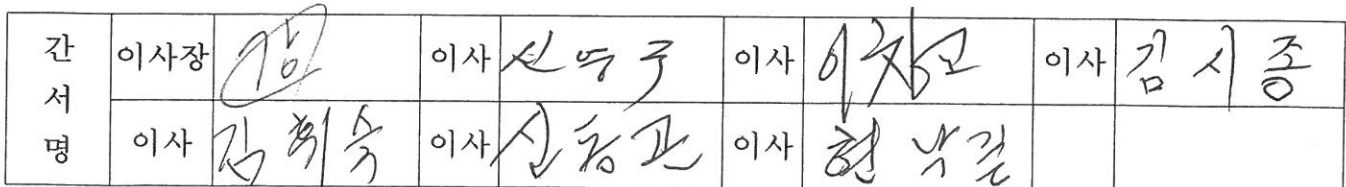 간서명 이사장 이사 신영구 이사 이창고 이사 김시종
이사 김휘숙 이사 신동관 이사 현낙길